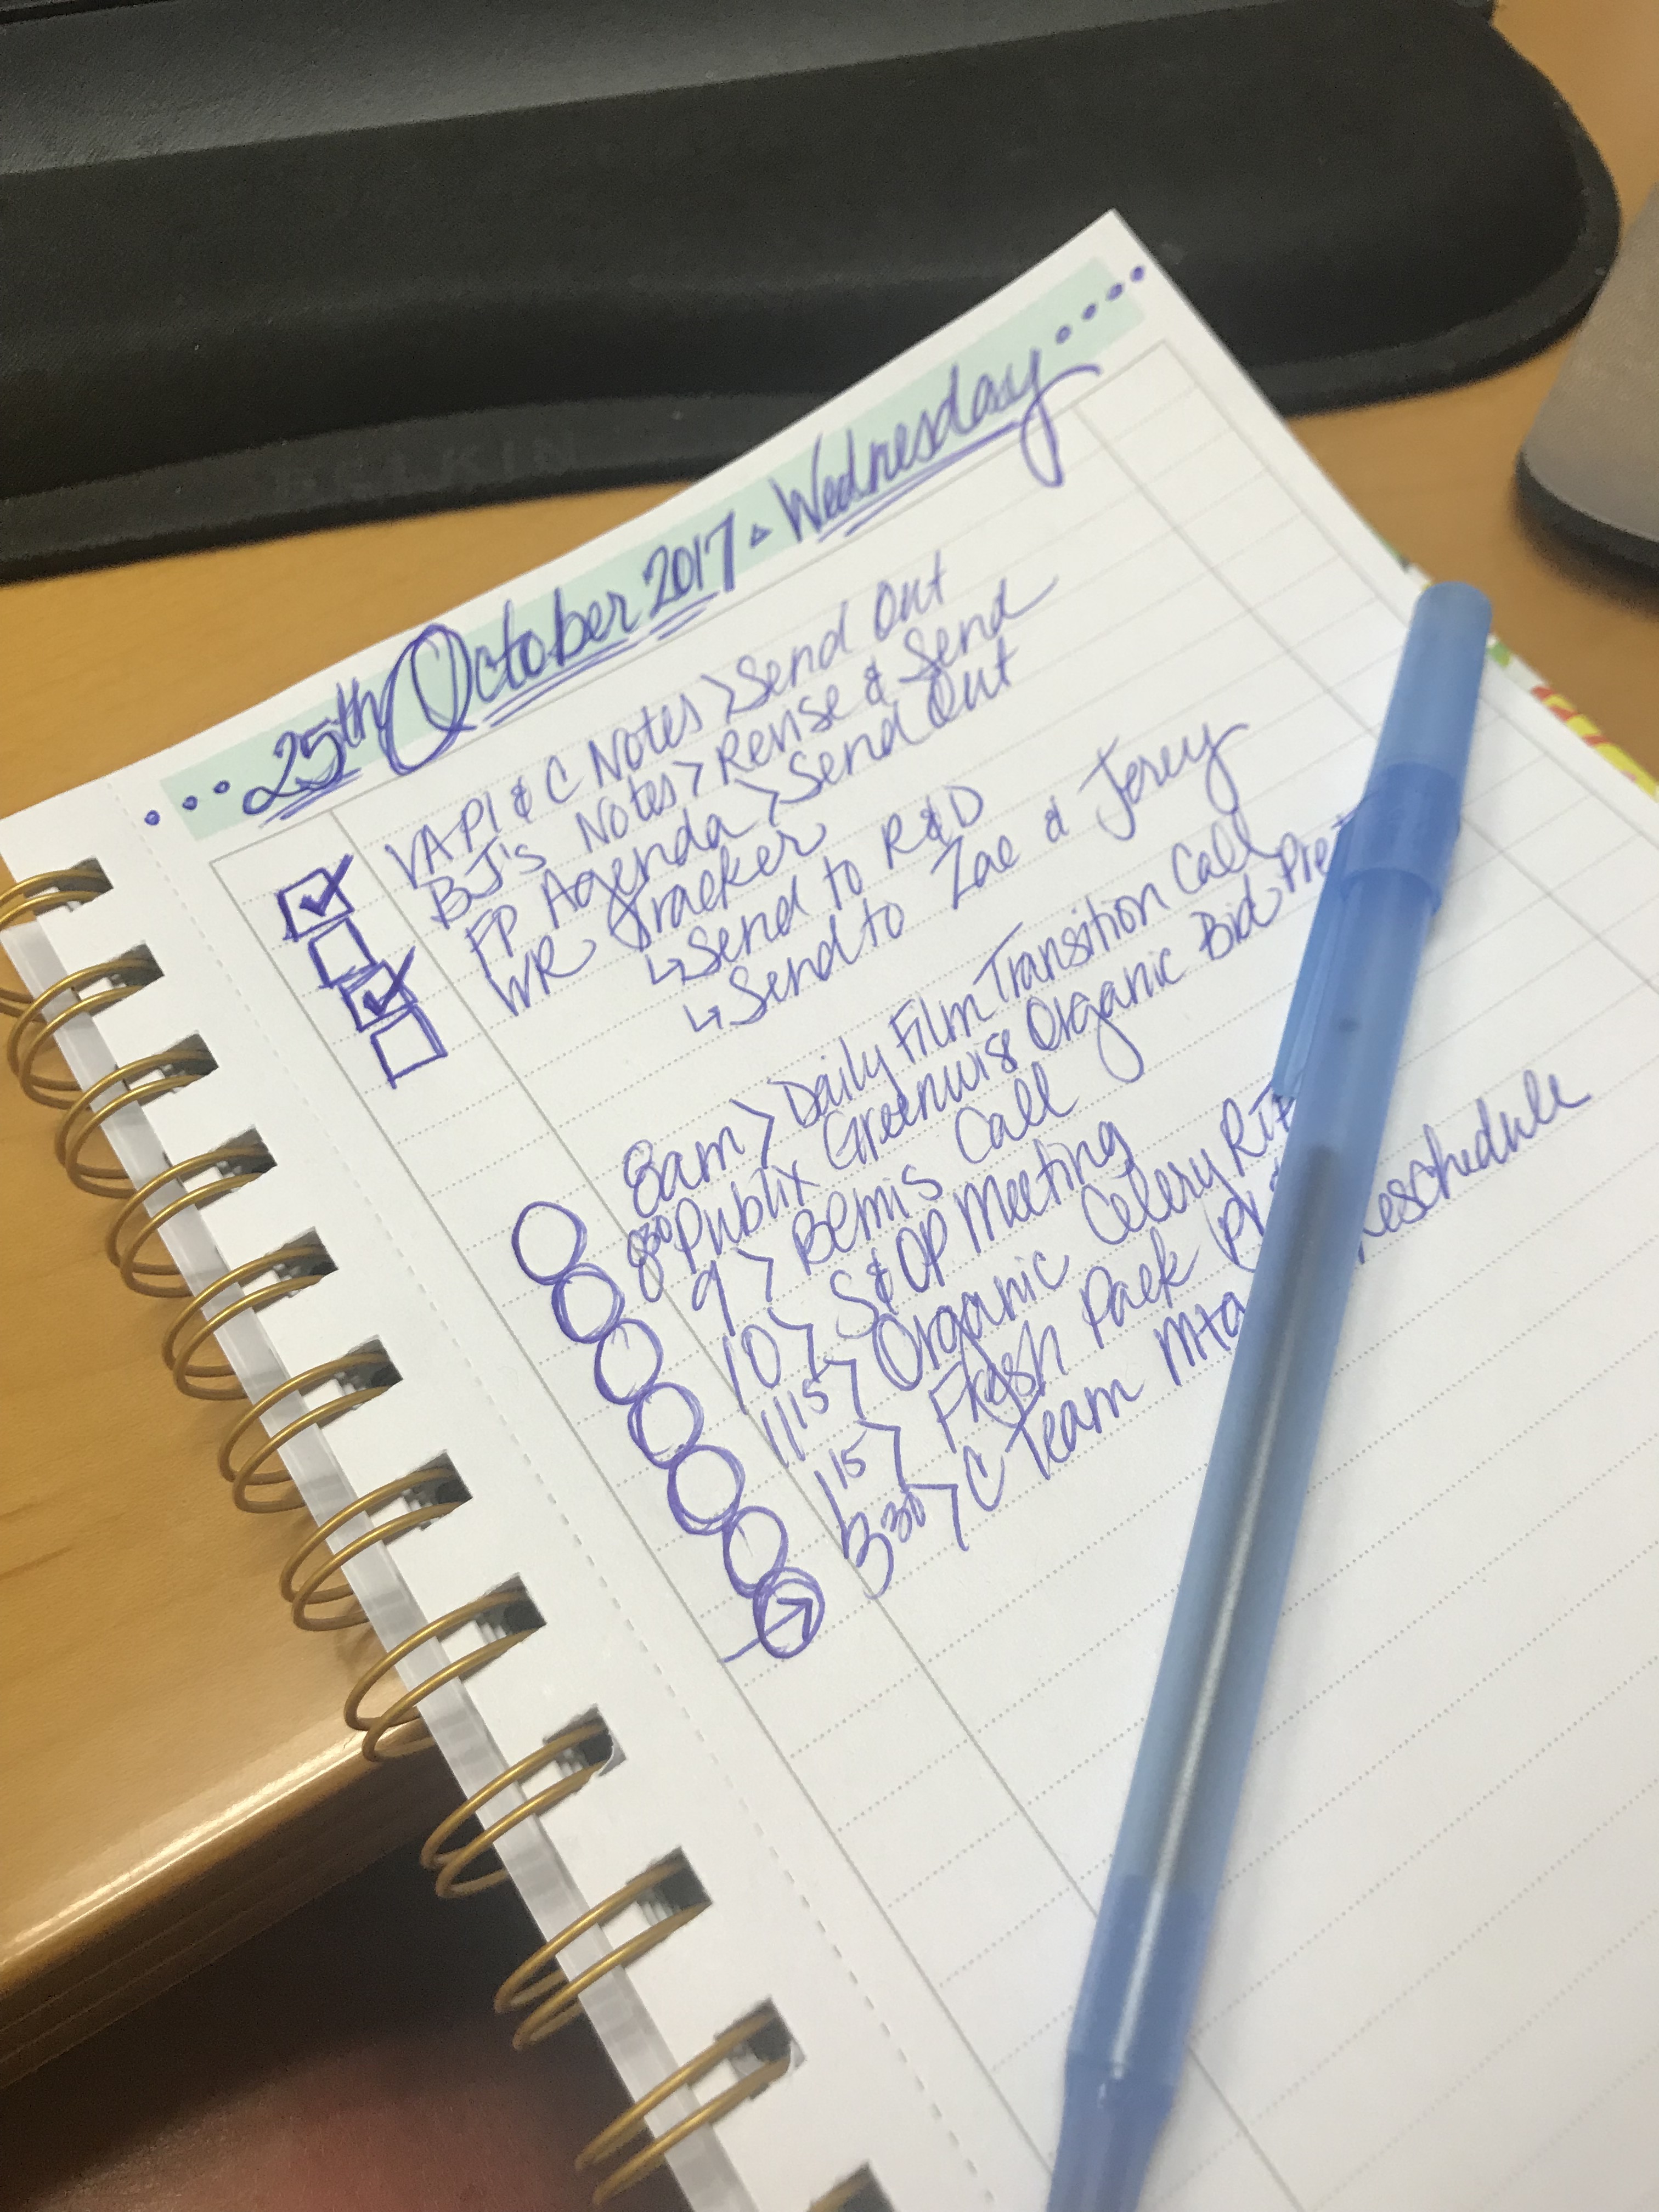 BELKIN
25th October 2017 ▸ Wednesday
VAPI & C Notes > Send Out
BJ's Notes > Revise & Send
FP Agenda > Send Out
WR Tracker
↳ Send to R&D
↳ Send to Zae & Jerey
8am > Daily Film Transition Call
8³⁰ Publix Greenwise Organic Bid
9 > Bemis Call
10 > S&OP Meeting
11¹⁵ > Organic Celery
1¹⁵ > Fresh Pack
3³⁰ > C Team Mtg reschedule